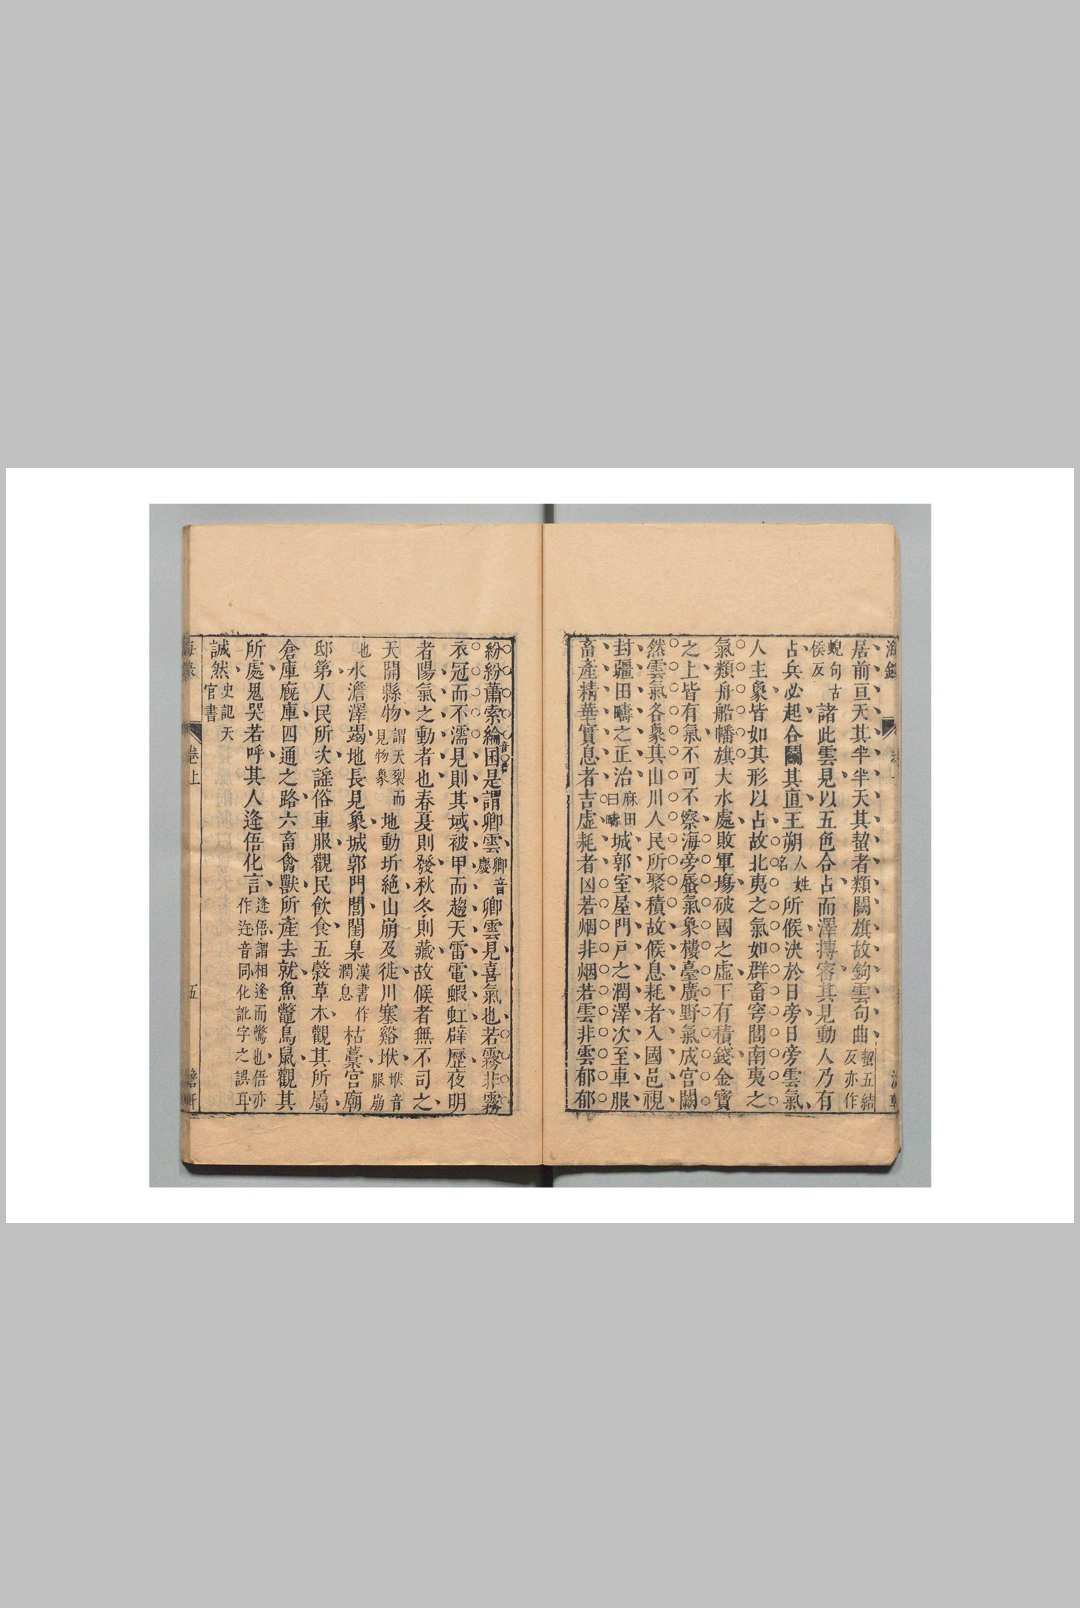 居前亘天其半半天其蛪者類闕旗故鉤雲句曲蛪五結反亦作
蜺句古侯反諸此雲見以五色合占而澤摶宻其見動人乃有
占兵必起合鬬其直王朔人姓名所候決於日旁日旁雲氣
人主象皆如其形以占故北夷之氣如群畜穹閭南夷之
氣類舟船幡旗大水處敗軍塲破國之虛下有積錢金寶
之上皆有氣不可不察海旁蜃氣象樓臺廣野氣成宮闕
然雲氣各象其山川人民所聚積故候息耗者入國邑視
封疆田疇之正治麻田曰疇城郭室屋門戶之潤澤次至車服
畜產精華實息者吉虛耗者凶若烟非烟若雲非雲郁郁
紛紛蕭索綸囷是謂卿雲卿音慶卿雲見喜氣也若霧非霧
衣冠而不濡見則其域被甲而趨天雷電蝦虹辟歷夜明
者陽氣之動者也春夏則發秋冬則藏故候者無不司之
天開縣物謂天裂而見物象地動坼絶山崩及徙川塞谿垘垘音服崩
地水澹澤竭地長見象城郭門閭閨臬漢書作潤息枯藁宮廟
邸第人民所次謠俗車服觀民飲食五穀草木觀其所屬
倉庫廐庫四通之路六畜禽獸所產去就魚鼈鳥鼠觀其
所處鬼哭若呼其人逢俉化言逢俉謂相逢而驚也俉亦作迕音同化訛字之誤耳
誠然史記天官書
卷上
五